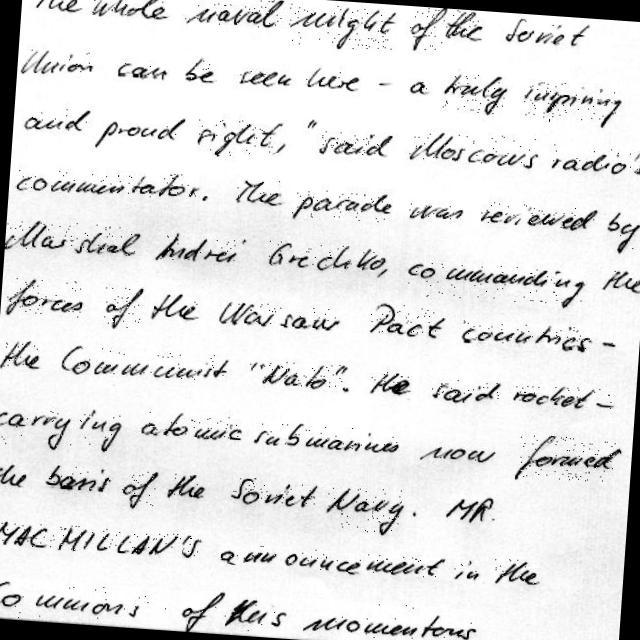 The whole naval might of the Soviet
Union can be seen here - a truly inspiring
and proud sight," said Moscows radio's
commentator. The parade was reviewed by
Marshal Andrei Grechko, commanding the
forces of the Warsaw Pact countries -
the Communist "Nato". He said rocket -
carrying atomic submarines now formed
the basis of the Soviet Navy. MR.
MACMILLAN'S announcement in the
Commons of this momentous